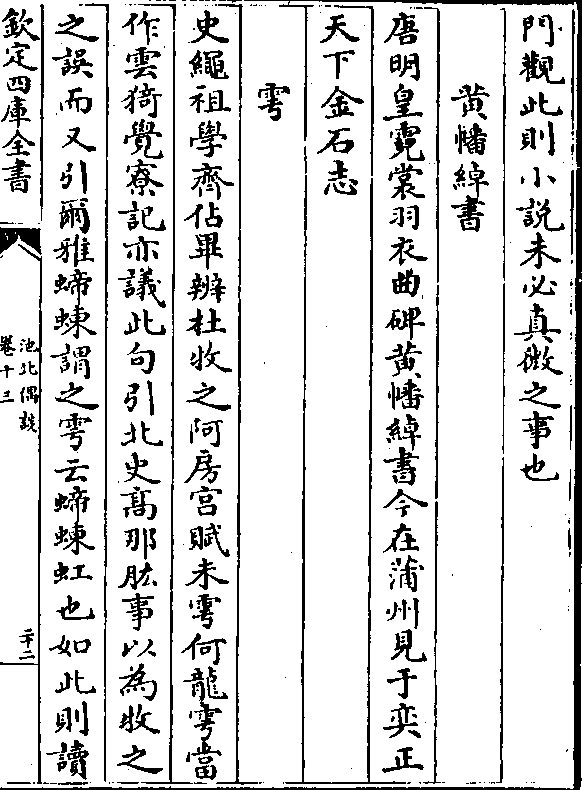 門觀此則小説未必真微之事也
黄幡綽書
唐明皇霓裳羽衣曲碑黄幡綽書今在蒲州見于奕正
天下金石志
雩
史繩祖學齋佔畢辨杜牧之阿房宫賦未雩何龍雩當
作雲猗覺寮記亦議此句引北史高那肱事以為牧之
之誤而又引爾雅螮蝀謂之雩云螮蝀虹也如此則讀
欽定四庫全書
池北偶談
卷十三
二十二